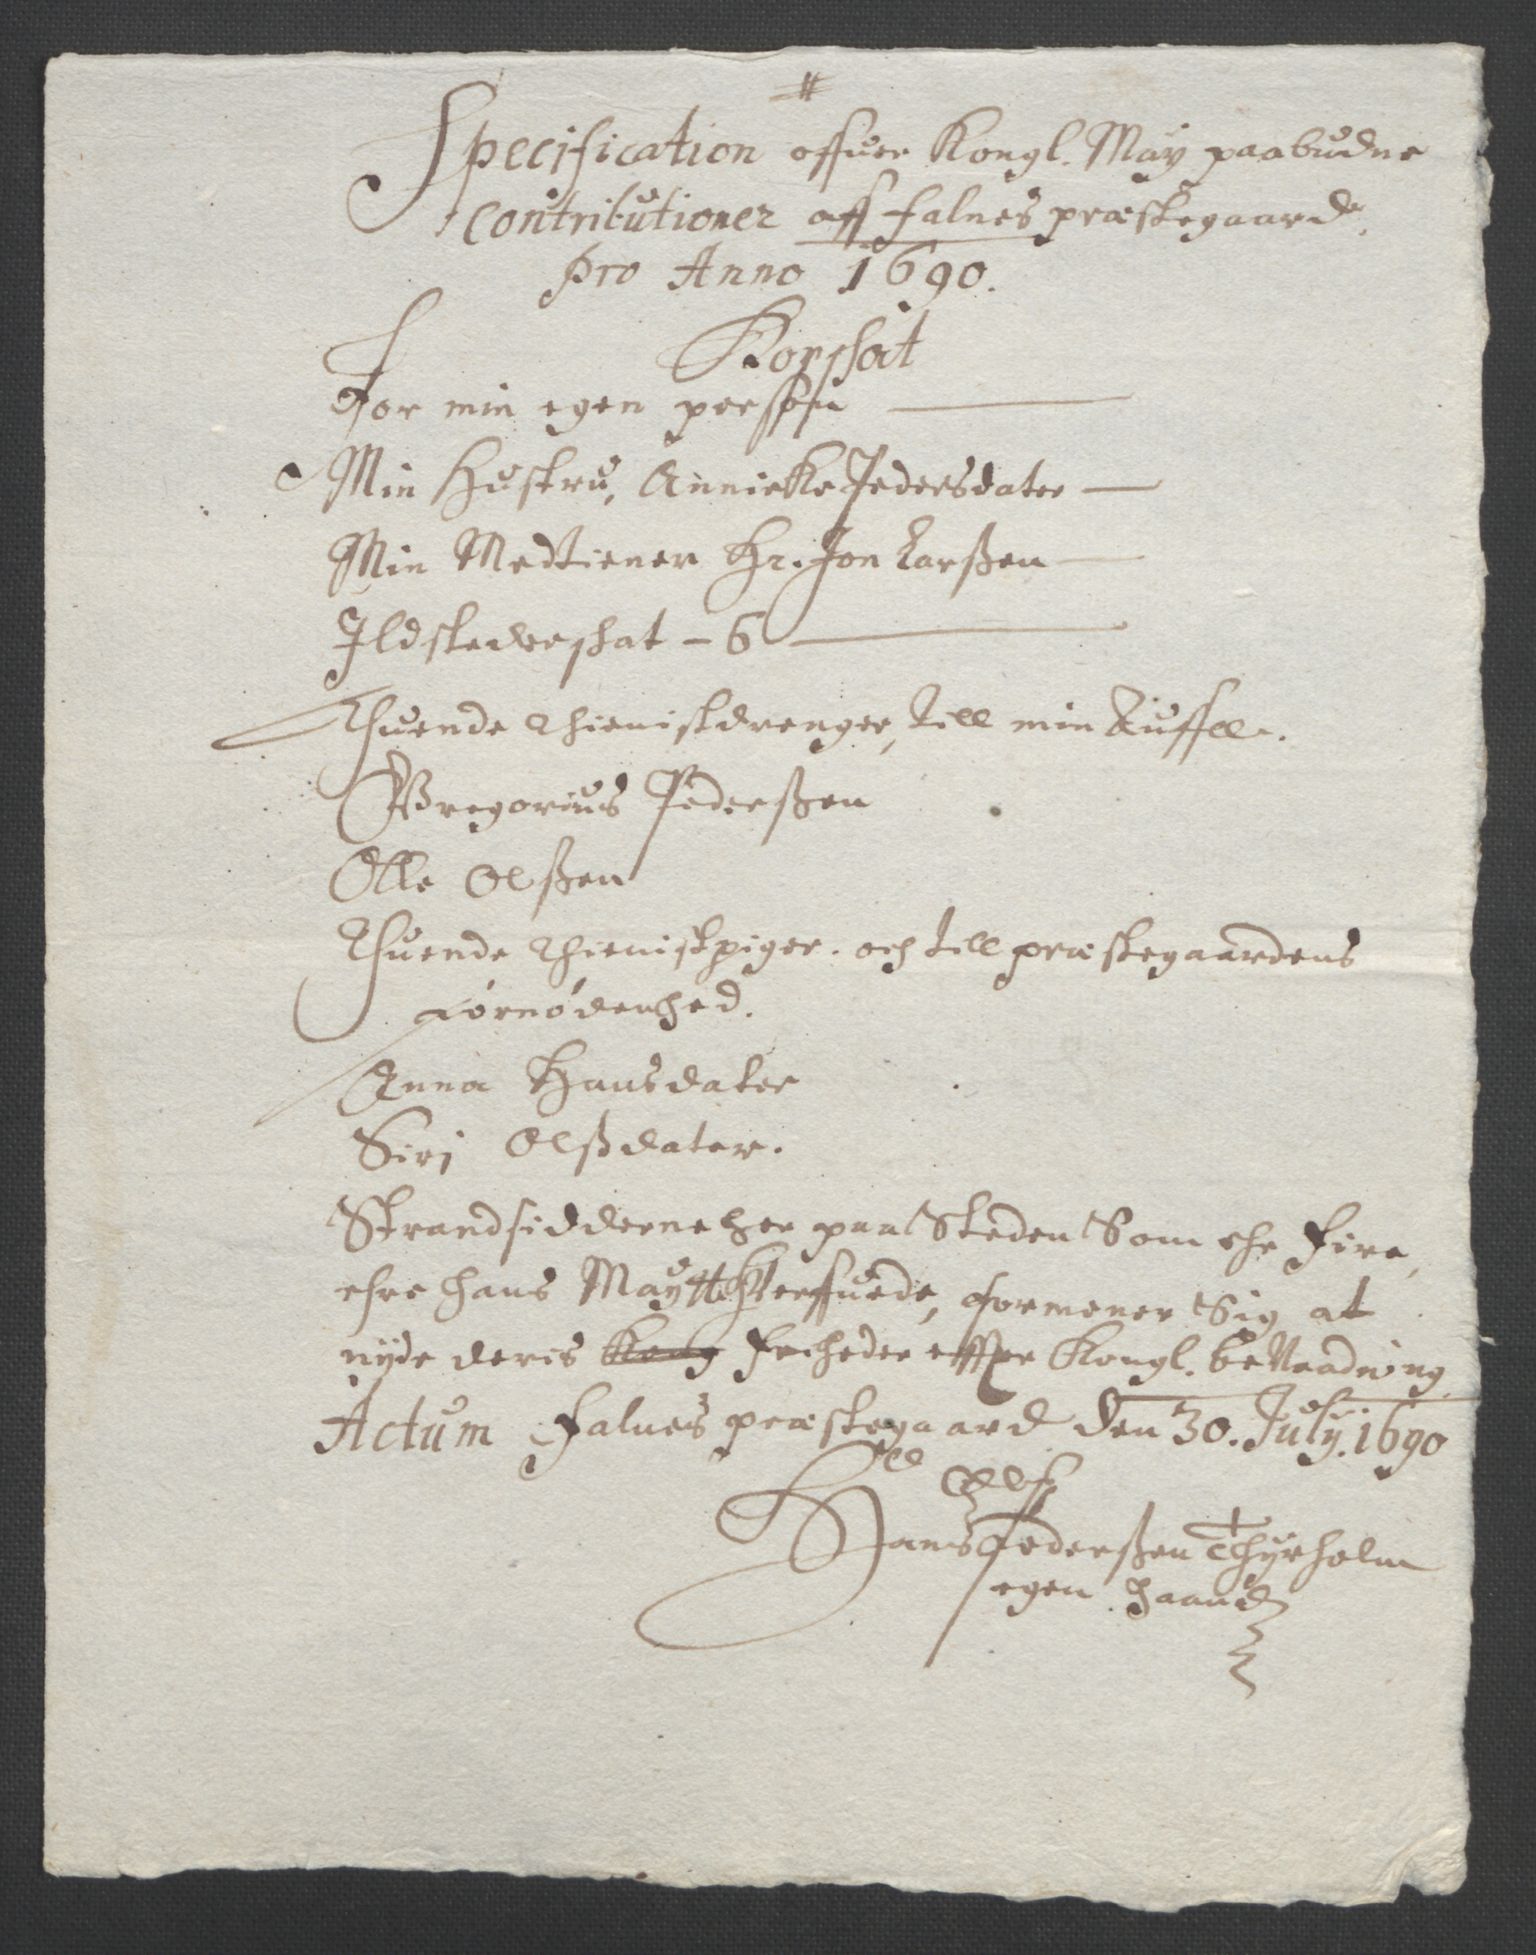 Specification offuer Kongl. May paabudne
Contributioner aff falnes præstegaard
pro Anno 1690.
Kopschat
For min egen person
Min Hustru, Annicke Pedersdater
Min Medtiener Hr. Jon Larßen
Ildstedeschat - 6
Thuende thienistdrenger, till min
Gregorius Pederßen
Olle Olßen
Thuende thienistpiger. och till præstegaardens
fornødenhed.
Anna Hansdater
Siri Olßdater.
Strandsidderne her paa Steden Som ehr fire,
ehre hans Maytt huerffuede, formener Sig at
nyde deris Kong friheder effter Kongl. benaadning
Actum Falnes præstegaard den 30. July. 1690
Hans Pederßen Thyrholm
egen haand